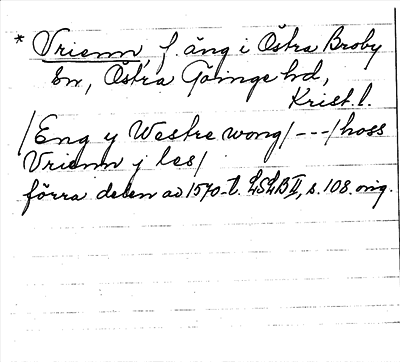 * Vrienn, f. äng i Östra Broby
sn, Östra Göinge hd,
Krist. l.
/Eng y Westre wong/ --- /hoss
Vrienn j les/
förra delen av 1570-t. LSLB II, s. 108. orig.